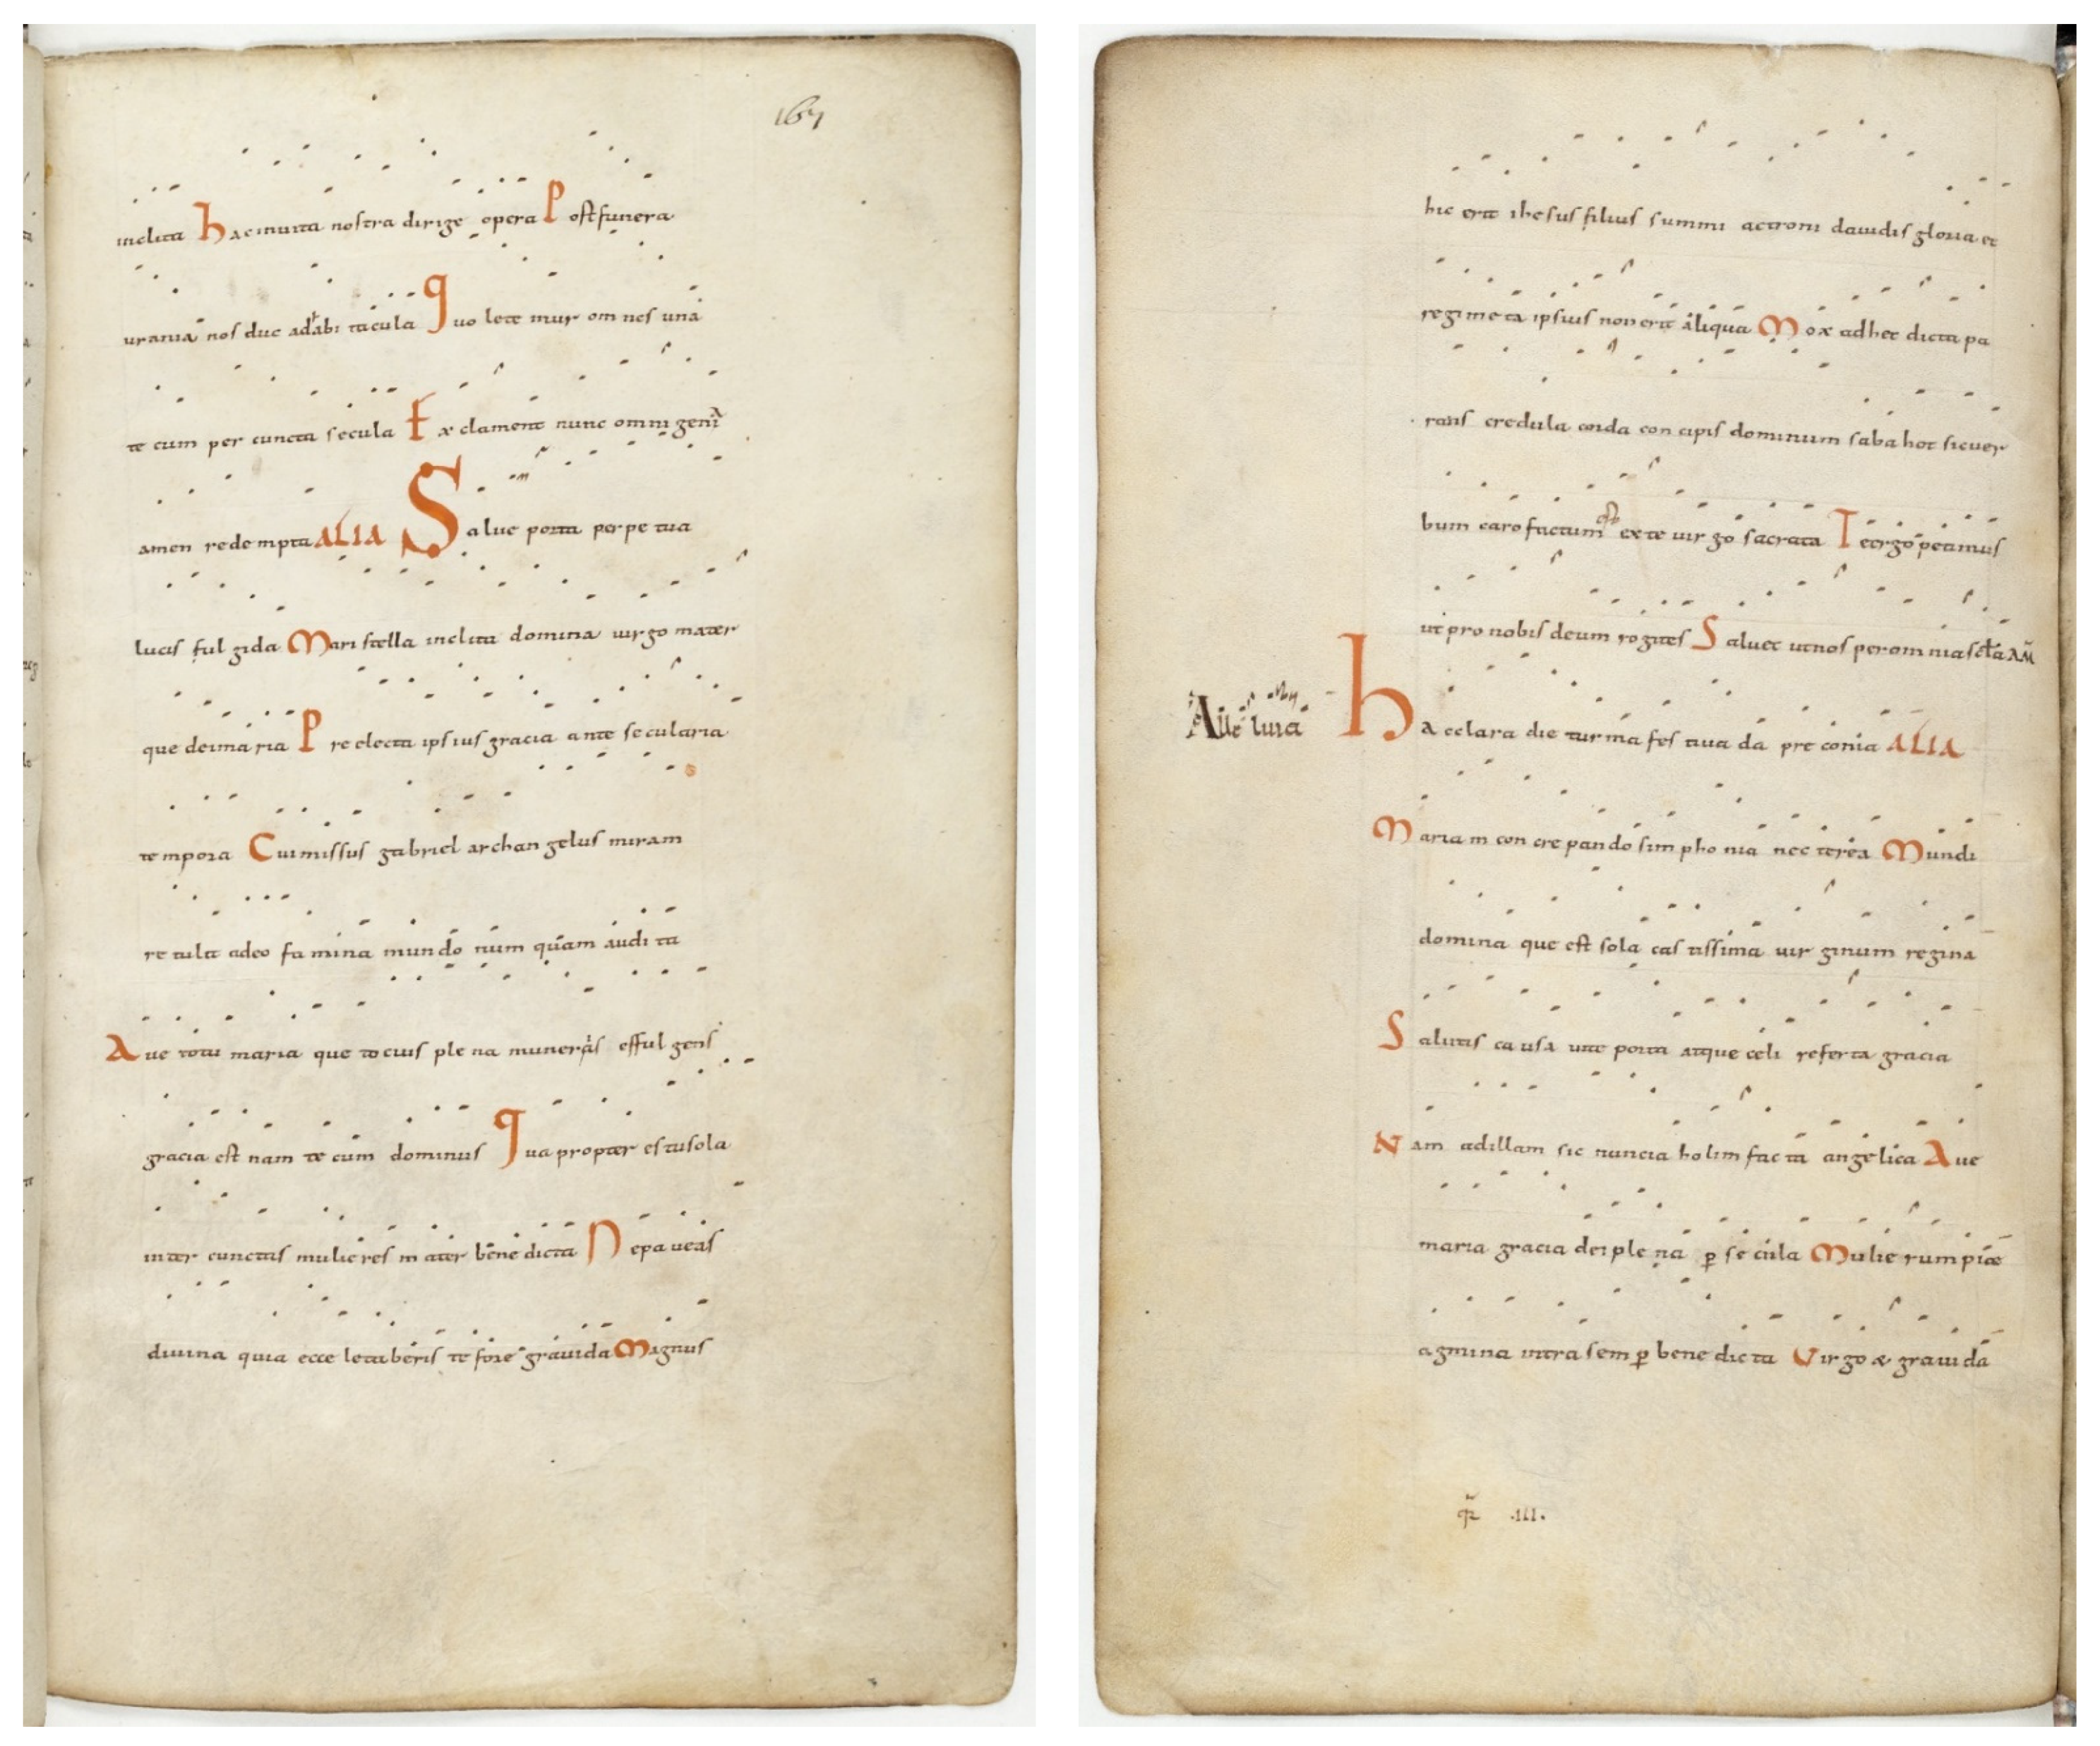 167
inclita Hac inuita nostra dirige opera Post funera
urania nos duc ad abitacula Quo letemur omnes una
te cum per cuncta secula Exclament nunc omnigena
amen redempta ALIA Salue porta perpetua
lucis fulgida Maristella inclita domina uirgo mater
que dei maria Preelecta ipsius gracia ante secularia
tempora Cui missus gabriel archangelus miram
retulit adeo famina mundo numquam audita
Aue tota maria que tocius plena muneras effulgens
gracia est nam tecum dominus Qua propter es tu sola
inter cunctas mulieres mater benedicta Ne paueas
diuina quia ecce letaberis te fore grauida Magnus
hic erit ihesus filius summi ac troni dauidis gloria et
regimeta ipsius non erit aliqua Mox ad hec dicta pa
rans credula corda concipis dominum sabahot sicuer
bum caro factum ex te uirgo sacrata Te ergo petimus
ut pro nobis deum rogites Saluet ut nos per omnia scła AM̄
Alleluia Hac clara die turma festiua da preconia ALIA
Mariam concrepando simphonia nectarea Mundi
domina que est sola castissima uirginum regina
Salutis causa uite porta atque celi referta gracia
Nam ad illam sic nuncia holim facta angelica Aue
maria gracia dei plena ꝑ secula Mulierum piæ
agmina intra semꝑ benedicta Virgo & grauida
.III.